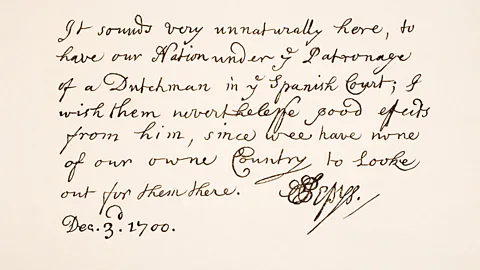 It sounds very unnaturally here, to
have our Nation under yᵉ Patronage
of a Dutchman in yᵉ Spanish Court; I
wish them neverthelesse good effects
from him, since wee have none
of our owne Country to Looke
out for them there. SPepys.
Dec. 3.ᵈ 1700.